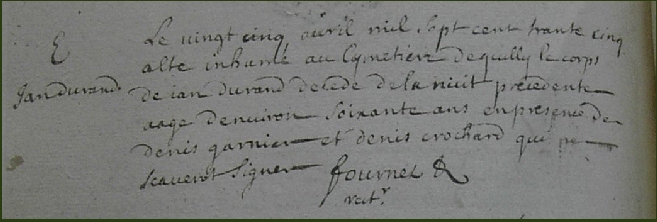 E
Jan durand
Le vingt cinq avril mil sept cent trante cinq
alté inhumé au Cymetiere dequilly le corps
de ian durand decede de la nuit precedente
aage denviron soixante ans en presence de
denis garnier et denis crochard qui
scauent signer
fournet &
rect.r